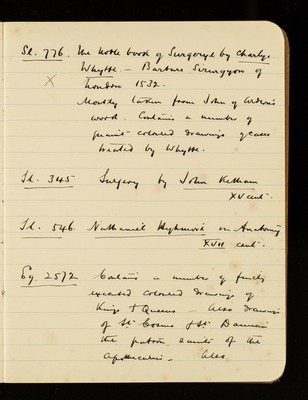 Sl. 776. The noble book of Surgerye by Charlys
Whytte. — Barbure Sirurgyon of
X London 1532.
Mostly taken from John of Arderne's
word. Contains a number of
quaint coloured drawings of cases
treated by Whytte.
Sl. 345 Surgery by John Ketham
XV cent.
Sl. 546 Nathaniel Highmore on Anatomy
XVII cent.
Eg. 2572 Contains a number of finely
executed coloured drawings of
Kings & Queens — Also drawings
of St Cosmo & St Damian
the patron saints of the
Apothecaries — Also